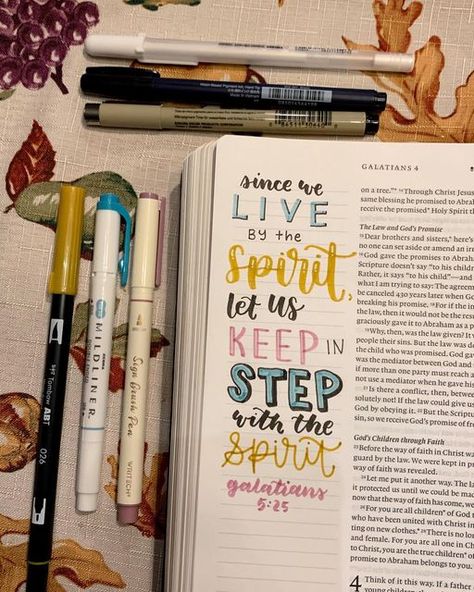 since we
LIVE
BY the
Spirit,
let us
KEEP IN
STEP
with the
Spirit
galatians
5:25
GALATIANS 4
on a tree."
"Through Christ Jesus
same blessing he promised to Abraham
receive the promised Holy Spirit
The Law and God's Promise
Dear brothers and sisters, here's
no one can set aside or amend an irre
God gave the promises to Abraham
Scripture doesn't say "to his child
Rather, it says "to his child"
what I am trying to say: The agreem
be canceled 430 years later when G
breaking his promise. For if the in
the law, then it would not be the resul
graciously gave it to Abraham as a p
Why, then, was the law given? It
people their sins. But the law was de
the child who was promised. God gave
the mediator between God and
if more than one party must reach a
not use a mediator when he gave hi
Is there a conflict, then, between
solutely not! If the law could give us
God by obeying it. But the Script
sin, so we receive God's promise of fr
God's Children through Faith
Before the way of faith in Christ wa
guard by the law. We were kept in p
way of faith was revealed.
Let me put it another way. The la
it protected us until we could be mad
now that the way of faith has come, we
For you are all children of God
who have been united with Christ in
ting on new clothes. There is no lon
and female. For you are all one in Ch
to Christ, you are the true children of
4 Think of it this way. If a father
young children
MILDLINER
Sign Brush Pen
WRITECH
Tombow ABT
026